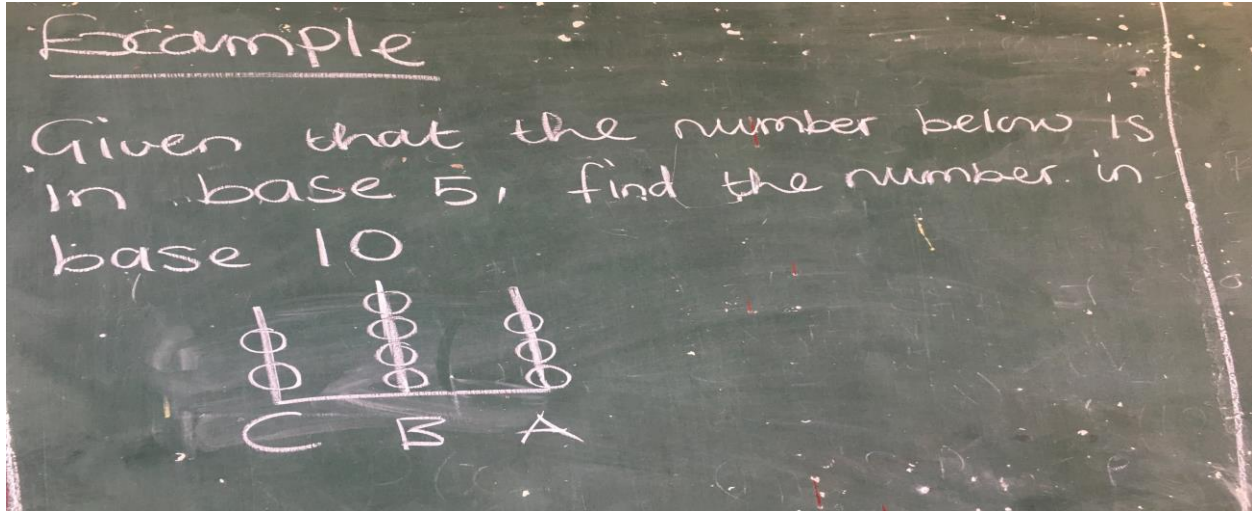 Example
Given that the number below is
in base 5, find the number in
base 10
C B A